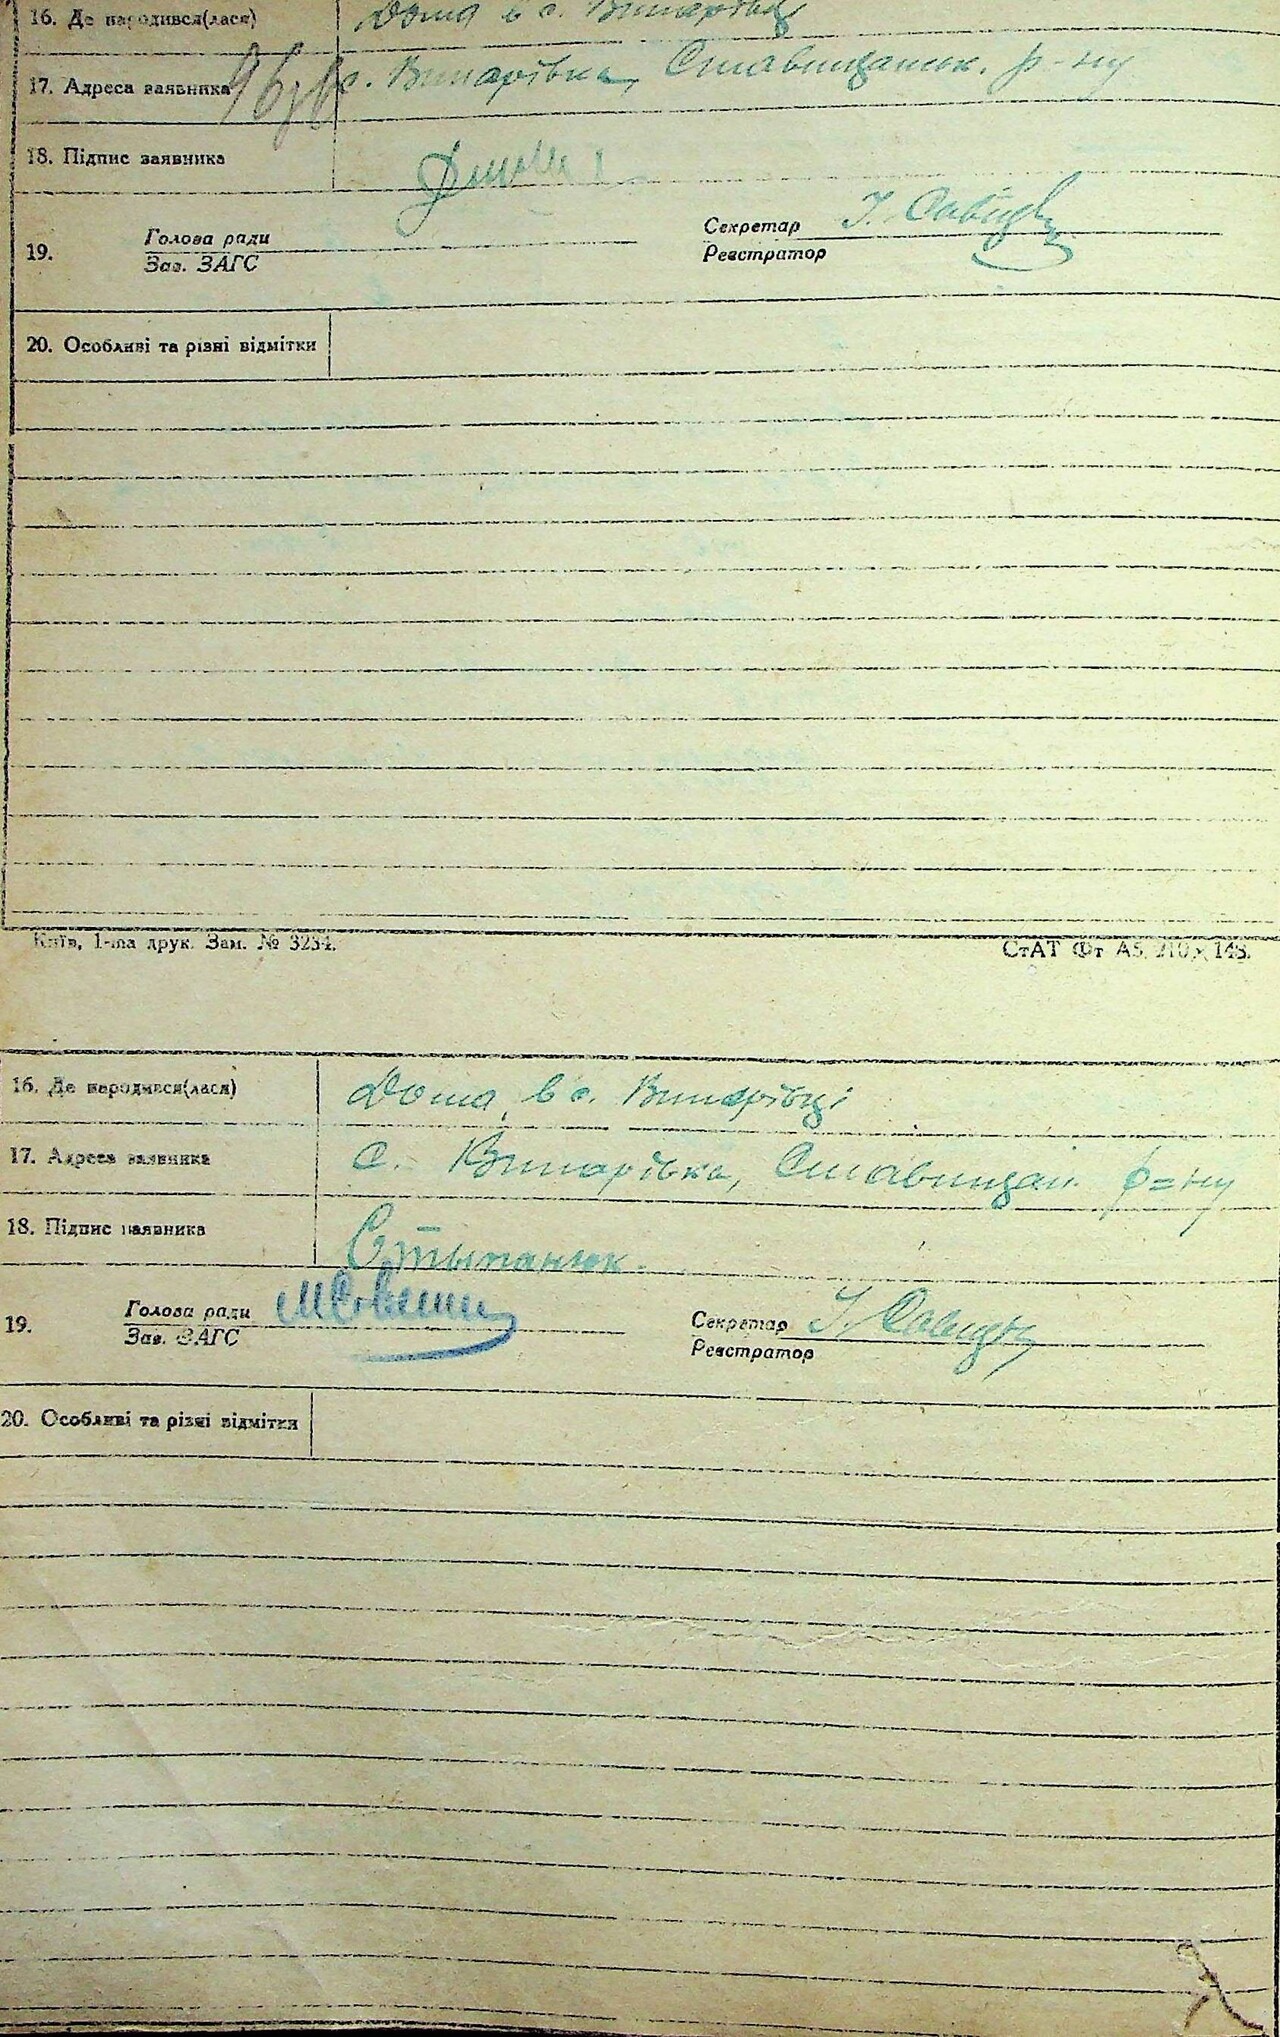 16. Де народився(лася) Дома в с. Винарівці
17. Адреса заявника с. Винарівка, Ставищанськ. р-ну
18. Підпис заявника
19. Голова ради
Зав. ЗАГС
Секретар І. Савіцьк
Реєстратор
20. Особливі та різні відмітки
Київ, 1-ша друк. Зам. № 3234.
СтАТ Фт А5 210 × 148.
16. Де народився(лася) Дома, в с. Винарівці
17. Адреса заявника с. Винарівка, Ставищан. р=ну
18. Підпис заявника Стыпанюк.
19. Голова ради
Зав. ЗАГС
Секретар І.
Реєстратор
20. Особливі та різні відмітки